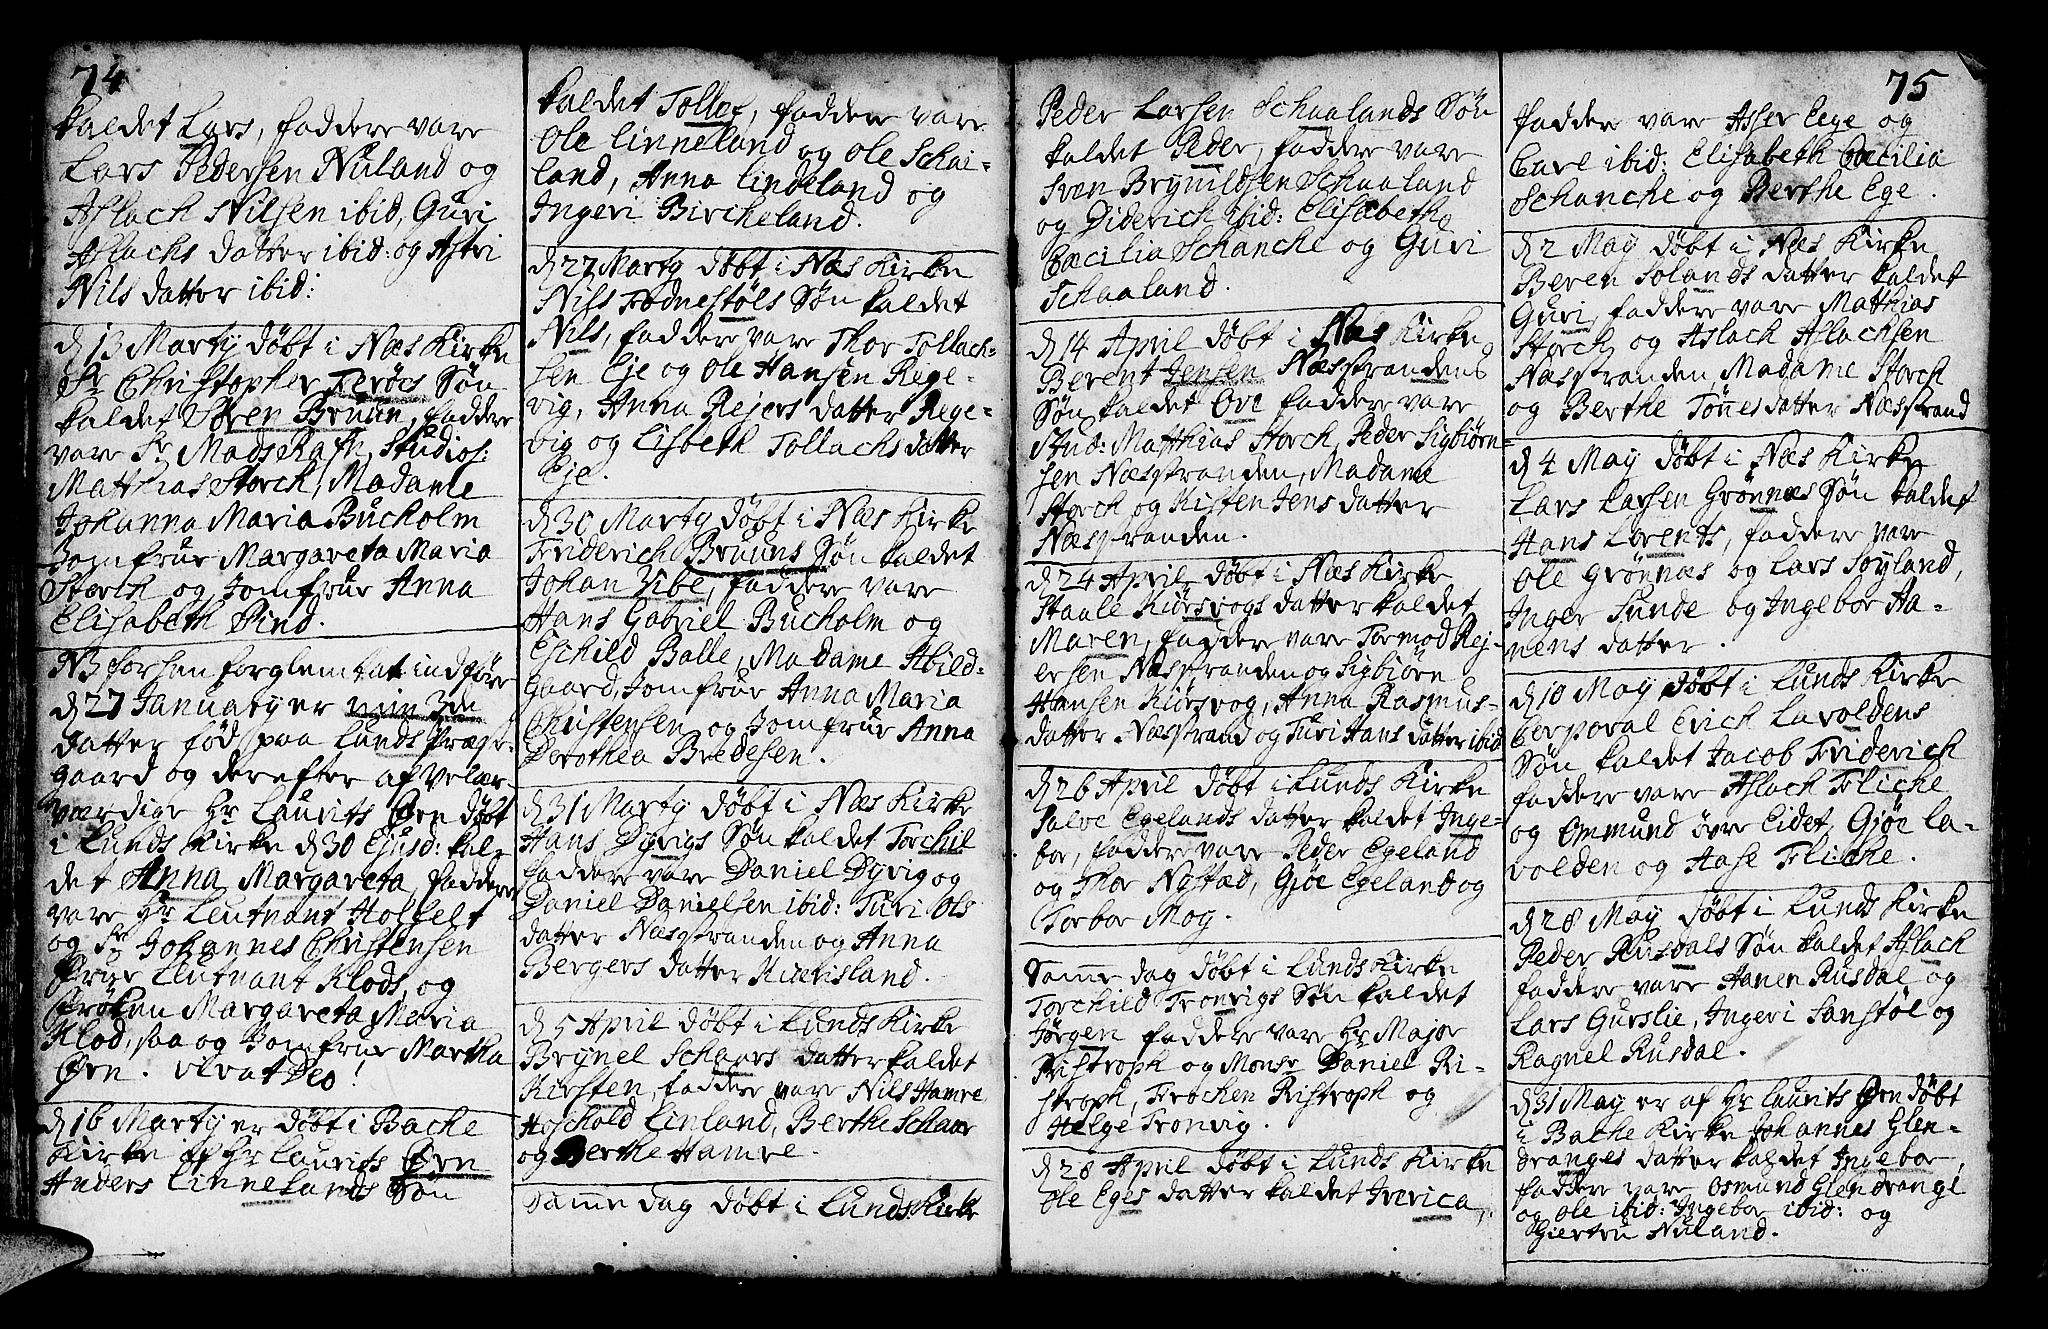 74
kaldet Lars, faddere vare
Lars Pedersen Nuland og
Aslach Nilsen ibid, Guri
Aslachs datter ibid: og Astri
Nils datter ibid:
d 13 Marty døbt i Næs Kirke
Sr Christopher Ferøes Søn
kaldet Søren Bruun, faddere
vare Sr Mads Rath, Studios:
Matthias Storch, Madame
Johanna Maria Bucholm
Jomfrue Margareta Maria
Storch og Jomfrue Anna
Elisabeth Pind.
NB forhen forglemt at indføre
d 27 January er min 3de
datter fød paa Lunds Præste-
gaard og derefter af Velær-
værdige Hr Laurits Ørn døbt
i Lunds Kirke d 30 Ejusd: kal-
det Anna Margareta, faddere
vare Hr Leutnant Holfelt
og Sr Johannes Christensen
Frue Leutnant Klods, og
Frøken Margareta Maria
Klod, saa og Jomfrue Martha
Ørn. vivat Deo!
d 16 Marty er døbt i Bache
Kirke af Hr Laurits Ørn
Anders Linnelands Søn
kaldet Tollef, faddere vare
Ole Linneland og Ole Schai-
land, Anna Lindeland og
Ingeri Bircheland.
d 27 Marty døbt i Næs Kirke
Niss Fodnestøls Søn kaldet
Nils, faddere vare Thor Tollach-
sen Eje og Ole Hansen Rege-
vig, Anna Rejers datter Rege-
vig og Lisbeth Tollachs datter
Eje.
d 30 Marty døbt i Næs Kirke
Friderich Bruuns Søn kaldet
Johan Vibe, faddere vare
Hans Gabriel Bucholm og
Eschild Balle, Madame Abild-
gaard, Jomfrue Anna Maria
Christensen og Jomfrue Anna
Dorothea Bredesen.
d 31 Marty døbt i Næs Kirke
Hans Dyvigs Søn kaldet Torchil
faddere vare Daniel Dyvig og
Daniel Danielsen ibid: Turi Ols
datter Næsstranden og Anna
Bergers datter Kiærisland.
d 5 April døbt i Lunds Kirke
Brynel Schaars datter kaldet
Kirsten, faddere vare Nils Hamre
Hoschold Linland, Berthe Schaar
og Berthe Hamre.
Samme dag døbt i Lunds Kirke
Peder Larsen Schaalands Søn
kaldet Peder, faddere vare
Sven Brynildsen Schaaland
og Diderich ibid: Elisabeth
Cæcilia Schanche og Guri
Schaaland.
d 14 April døbt i Næs Kirke
Berent Jensen Næsstrandens
Søn kaldet Ove faddere vare
Stud: Matthias Storch, Peder Sigbiørn-
sen Næsstranden, Madame
Storch og Kisten Jens datter
Næsstranden.
d 24 April døbt i Næs Kirke
Staale Kiørsvogs datter kaldet
Maren, faddere vare Tormod Rej-
ersen Næsstranden og Sigbiørn
Hansen Kiørsvog, Anna Rasmus-
datter Næsstrand og Turi Hans datter ibid
d 26 April døbt i Lunds Kirke
Salve Egelands datter kaldet Inge-
bor, faddere vare Peder Egeland
og Thor Nystæd, Gjøe Egeland og
Torbor Mog.
Samme dag døbt i Lunds Kirke
Torchild Tronvigs Søn kaldet
Jørgen faddere vare Hr Major
Ristroph og Monsr Daniel Ri-
stroph, Frøchen Ristroph og
Helge Tronvig.
d 28 April døbt i Lunds Kirke
Ole Eges datter kaldet Iverica,
75
faddere vare Asser Eege og
Carl ibid: Elisabeth Cæcilia
Schanche og Berthe Ege.
d 2 May døbt i Næs Kirke
Beren Solands datter kaldet
Guri, faddere vare Matthias
Storch og Aslach Aslachsen
Næsstranden, Madame Storch
og Berthe Tønes datter Næsstrand
d 4 May døbt i Næs Kirke
Lars Larsen Grønnæs Søn kaldet
Hans Lorents, faddere vare
Ole Grønnæs og Lars Soyland,
Inger Sunde og Ingebor Ha-
nens datter.
d 10 May døbt i Lunds Kirke
Corporal Erich Lavoldens
Søn kaldet Jacob Friderich
faddere vare Aslach Fliche
og Omund øvre Eidet, Gjøe La-
volden og Aase Fliche.
d 28 May døbt i Lunds Kirke
Peder Rusdals Søn kaldet Aslach
faddere vare Hanen Rusdal og
Lars Gurslie, Ingeri Sanstøl og
Ragnel Rusdal.
d 31 May er af Hr Laurits Ørn døbt
i Bache Kirke Johannes Glen-
dranges datter kaldet Ingebor,
faddere vare Osmund Glendrange
og Ole ibid: Ingebor ibid: og
Giertru Nuland.